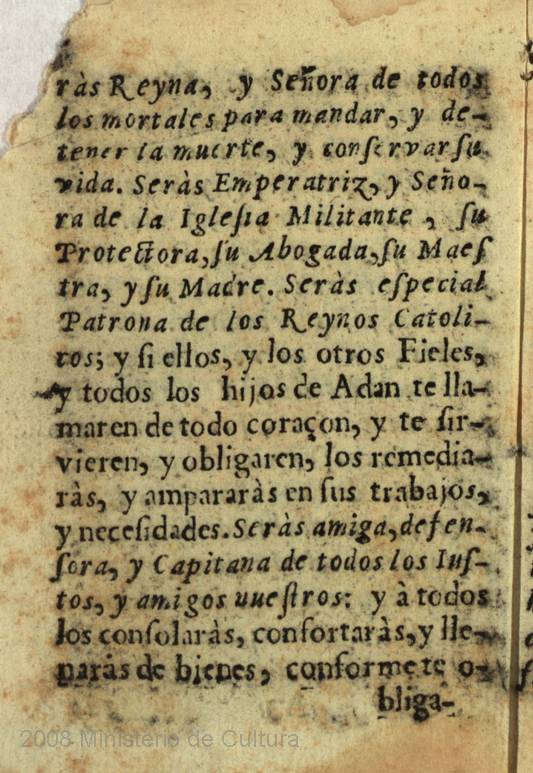 ràs Reyna, y Señora de todos
los mortales para mandar, y de-
tener la muerte, y conſervar ſu
vida. Seràs Emperatriz, y Seño-
ra de la Igleſia Militante, ſu
Protectora, ſu Abogada, ſu Maeſ
tra, y ſu Madre. Seràs eſpecial
Patrona de los Reynos Catoli-
cos; y ſi ellos, y los otros Fieles,
y todos los hijos de Adan te lla-
maren de todo coraçon, y te ſir-
vieren, y obligaren, los remedia-
ràs, y ampararàs en ſus trabajos,
y neceſidades. Seràs amiga, defen-
ſora, y Capitana de todos los Iuſ-
tos, y amigos uueſtros: y à todos
los conſolaràs, confortaràs, y lle-
naràs de bienes, conforme te o-
bliga-
2008 Ministerio de Cultura